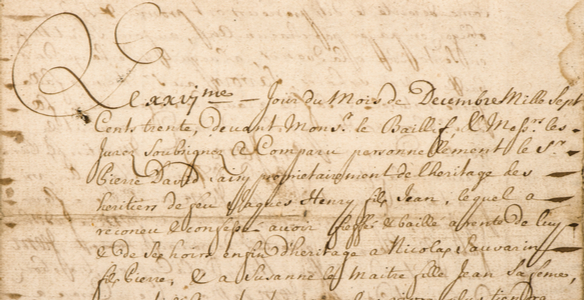 Le xxiv me Jour du Mois de Decembre Mille Sept
Cents trente, devant Monsr. le Baillif, & Messrs. les
Jurez Soubsignez A Comparu personnellement le Sr.
Pierre David propriétairement de l'heritage des
heritiers de feu Jaques Henry fils Jean, lequel a
reconeu & confessé avoir fieffé & baillé a rente de luy
& de ses hoirs enfin d'heritage a Nicolas Sauvarin
fils Pierre, & a Susanne le Maitre fille Jean sa feme,